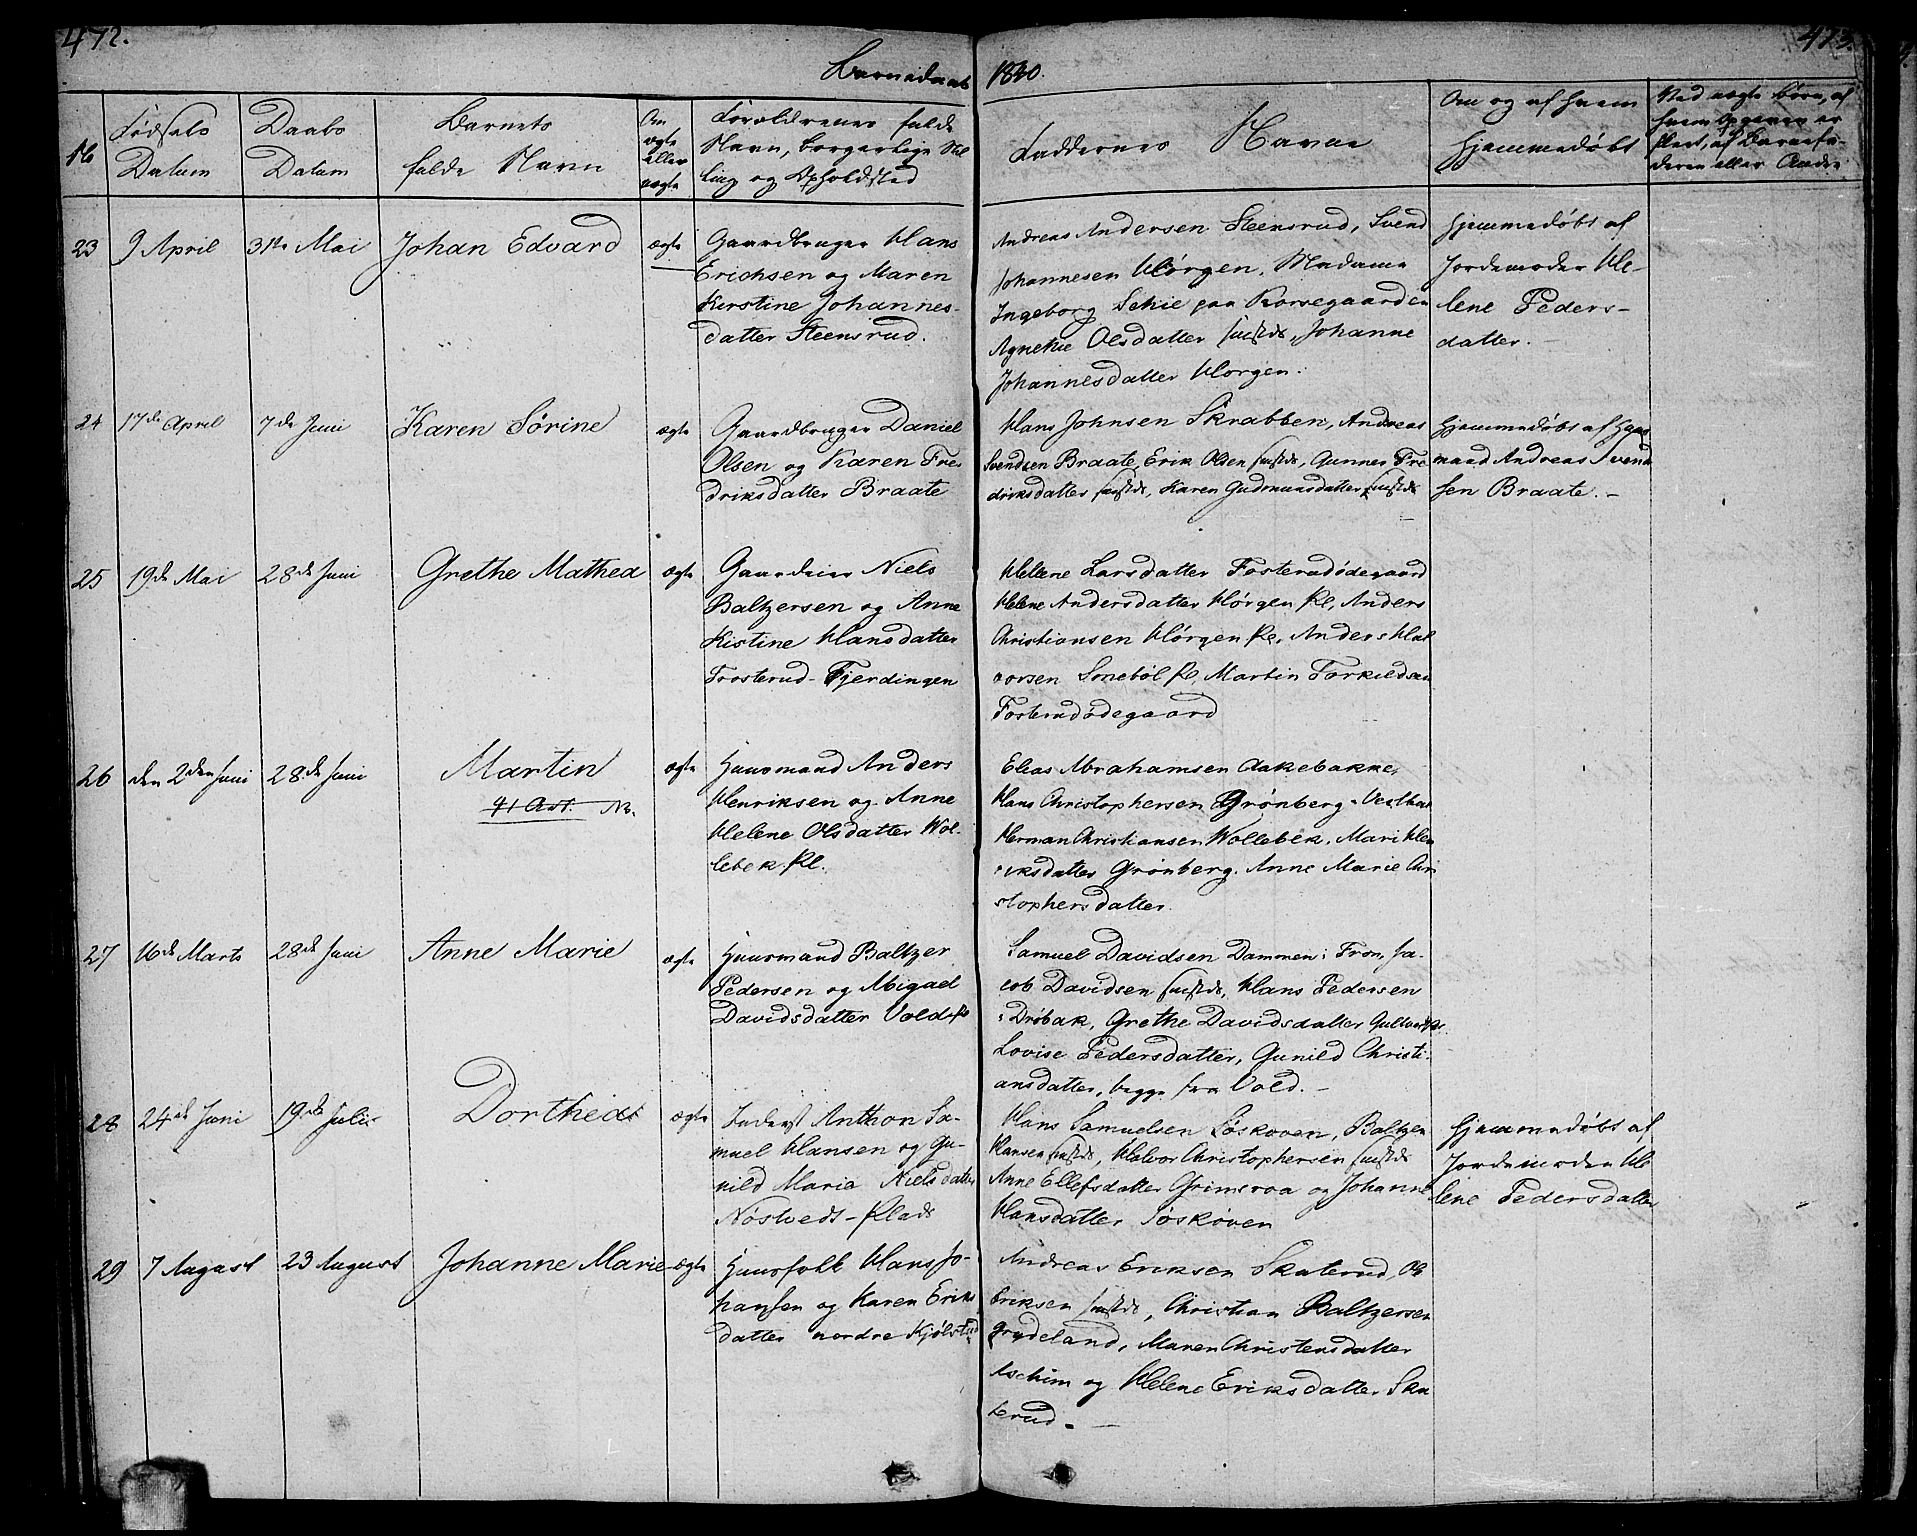 472.
473.
Barnedaab 1840.
№
Fødsels Datum
Daabs Datum
Barnets fulde Navn
Om ægte eller uægte
Forældrenes fulde
Navn, borgerlige Stil-
ling og Opholdsted
Faddernes Navne
Om og af hvem
hjemmedøbt
Ved uægte Børn, af
hvem Opgaven er
skeet, af Barnefa-
deren eller Andre
23
9 April
31te Mai
Johan Edvard
ægte
Gaardbruger Hans
Erichsen og Maren
Kirstine Johannes-
datter Steensrud.
Andreas Andersen Steensrud, Svend
Johannesen Horgen, Madame
Ingeborg Schie paa Korsegaarden
Agnethe Olsdatter sammesteds, Johanne
Johannesdatter Horgen.
Hjemmedøbt af
Jordemoder He-
lene Peders-
datter.
24
17de April
7de Juni
Karen Sørine
ægte
Gaardbruger Daniel
Olsen og Karen Fre-
driksdatter Braate
Hans Johnsen Skrabben, Andreas
Svendsen Braate, Erik Olsen sammesteds, Gunner Fre
driksdatter sammesteds, Karen Gudmunsdatter sammesteds
Hjemmedøbt af Huus
mand Andreas Svend
sen Braate.
25
19de Mai
28de Juni
Grethe Mathea
ægte
Gaardeier Niels
Baltzersen og Anne
Kistine Hansdatter
Frosterud-Fjerdingen
Hellene Larsdatter Fosterudødegaard
Helene Andersdatter Hørgen Pl, Anders
Christiansen Hørgen Pl, Anders Hal
vorsen Smebøl Pl, Martin Torkildsen
Fosterudødegaard
26
den 2den Juni
28de Juni
Martin
ægte
Huusmand Anders
Henriksen og Anne
Helene Olsdatter Wol-
lebek Pl.
Elias Abrahamsen Aakebakke,
Hans Christophersen Grønberg-Vestbæ
Herman Christiansen Wollebek, Mari Hen
riksdatter Grønberg. Anne Marie Chri
stophersdatter.
27
16de Marts
28de Juni
Anne Marie
ægte
Huusmand Baltzer
Pedersen og Abigael
Davidsdatter Vold Pl
Samuel Davidsen Dammen i Fron, Ja-
cob Davidsen sammesteds, Hans Pedersen
i Drøbak, Grethe Davidsdatter
Lovise Pedersdatter, Gunild Christi-
ansdatter, begge fra Vold.
28
24de Juni
19de Juli
Dorthea
ægte
Inderst Anthon Sa-
muel Hansen og Gu-
nild Maria Nielsdatter
Nøstvedt-Plads
Hans Samuelsen Søskoven, Baltzer
Hansen sammesteds, Halvor Christophersen sammesteds
Anne Ellefsdatter Grimsroa og Johanne
Hansdatter Søskøven
Hjemmedøbt af
Jordemoder He
lene Pedersdatter
29
7 August
23 August
Johanne Marie
ægte
Huusfolk Hans Jo-
hansen og Karen Eriks
datter nordre Kjølstad
Andreas Eriksen Skaterud, Ole
Eriksen sammesteds, Christian Baltzersen
Grydeland, Maren Christensdatter
Aschim og Helene Eriksdatter Ska
terud.